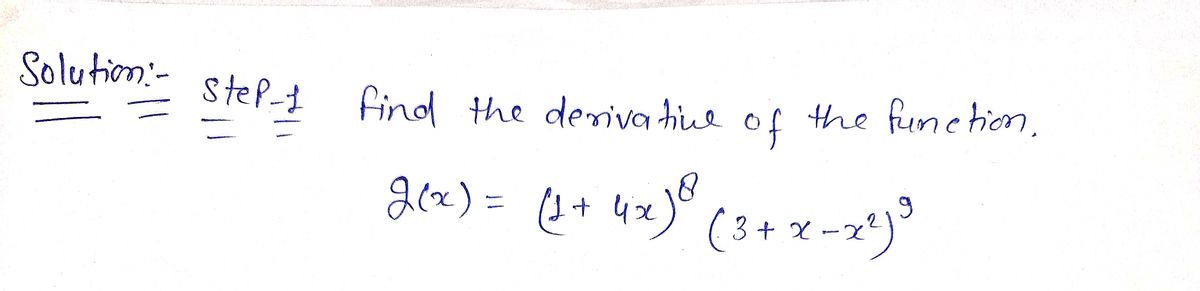 Solution:- Step-1 find the derivative of the function.
g(x) = (1 + 4x)⁸ (3 + x - x²)⁹